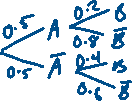 0.5 A 0.2 B
0.8 B̅
0.5 A̅ 0.4 B
0.6 B̅